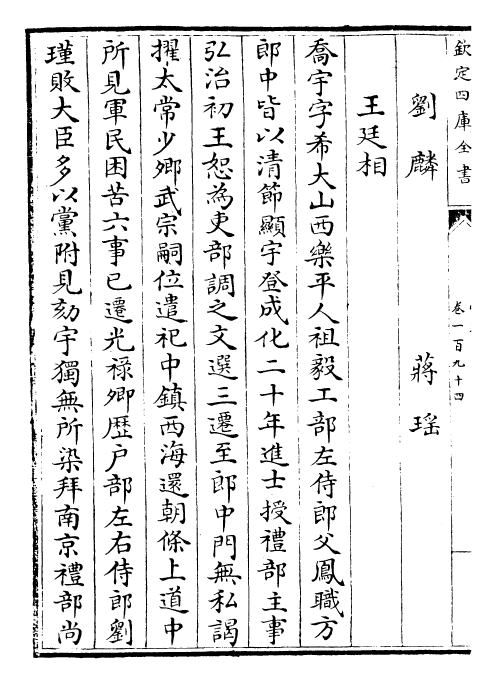 欽定四庫全書
卷一百九十四
劉麟　蔣瑤
王廷相
喬宇字希大山西樂平人祖毅工部左侍郎父鳳職方
郎中皆以清節顯宇登成化二十年進士授禮部主事
弘治初王恕為吏部調之文選三遷至郎中門無私謁
擢太常少卿武宗嗣位遣祀中鎮西海還朝條上道中
所見軍民困苦六事已遷光祿卿歷户部左右侍郎劉
瑾敗大臣多以黨附見劾宇獨無所染拜南京禮部尚